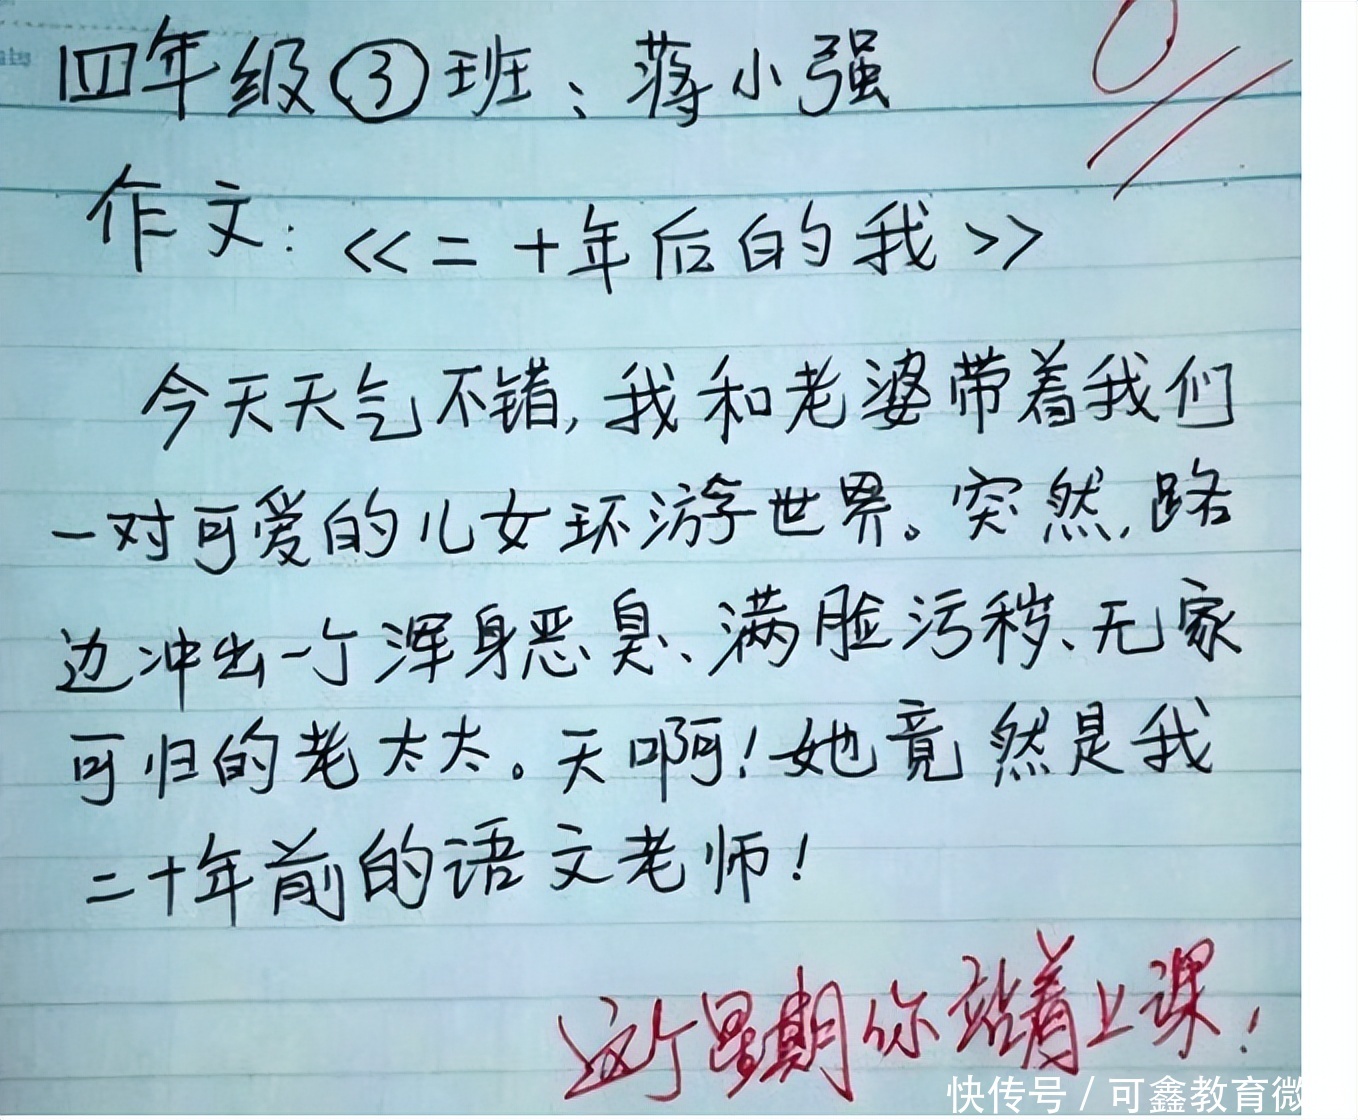 四年级③班：蒋小强
0
作文：<<二十年后的我>>
今天天气不错,我和老婆带着我们
一对可爱的儿女环游世界。突然,路
边冲出一个浑身恶臭、满脸污秽、无家
可归的老太太。天啊!她竟然是我
二十年前的语文老师!
这个星期你站着上课!
快传号/可鑫教育微